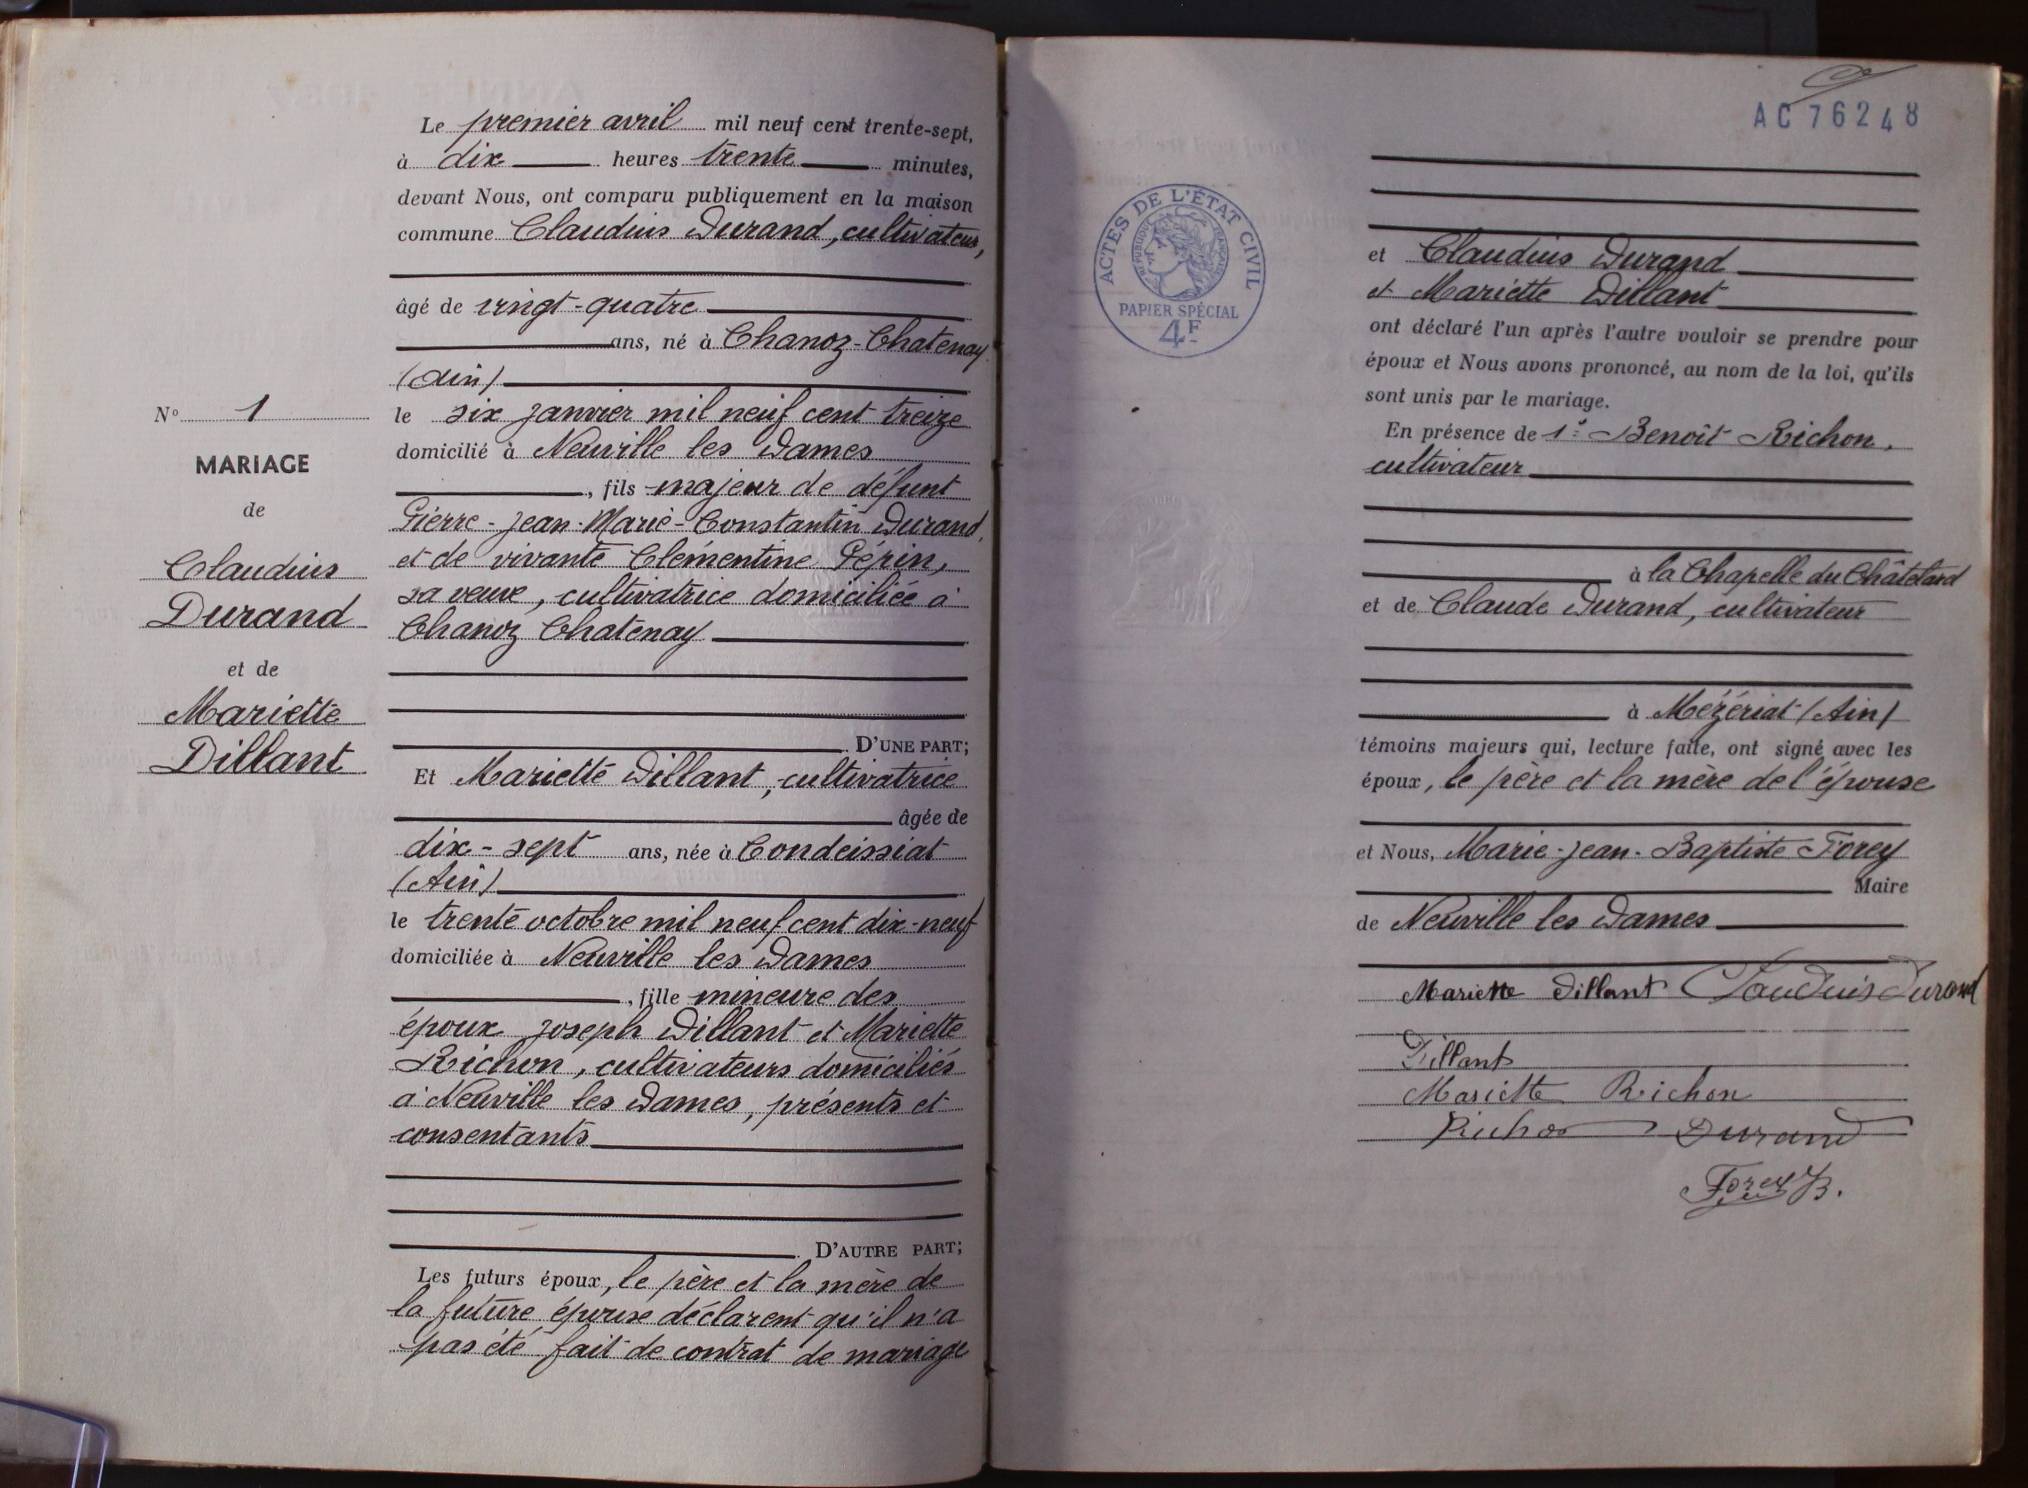 N° 1
MARIAGE
de
Claudius
Durand
et de
Mariette
Dillant
Le premier avril mil neuf cent trente-sept,
à dix heures trente minutes,
devant Nous, ont comparu publiquement en la maison
commune Claudius Durand, cultivateur,
âgé de vingt-quatre
ans, né à Chanoz-Chatenay
(Ain)
le six janvier mil neuf cent treize
domicilié à Neuville les Dames
, fils majeur de défunt
Pierre-Jean-Marie-Constantin Durand,
et de vivante Clémentine Pépin,
sa veuve, cultivatrice domiciliée à
Chanoz Chatenay
D'UNE PART;
Et Mariette Dillant, cultivatrice
âgée de
dix-sept ans, née à Condeissiat
(Ain)
le trente octobre mil neuf cent dix-neuf
domiciliée à Neuville les Dames
, fille mineure des
époux Joseph Dillant et Mariette
Richon, cultivateurs domiciliés
à Neuville les Dames, présents et
consentants
D'AUTRE PART;
Les futurs époux, le père et la mère de
la future épouse déclarent qu'il n'a
pas été fait de contrat de mariage
AC 76248
ACTES DE L'ÉTAT CIVIL
RÉPUBLIQUE FRANÇAISE
PAPIER SPÉCIAL
4F
et Claudius Durand
et Mariette Dillant
ont déclaré l'un après l'autre vouloir se prendre pour
époux et Nous avons prononcé, au nom de la loi, qu'ils
sont unis par le mariage.
En présence de 1° Benoît Richon,
cultivateur
à la Chapelle du Châtelard
et de Claude Durand, cultivateur
à Mézériat (Ain)
témoins majeurs qui, lecture faite, ont signé avec les
époux, le père et la mère de l'épouse
et Nous, Marie-Jean-Baptiste Forey
Maire
de Neuville les Dames
Mariette Dillant Claudius Durand
Dillant
Mariette Richon
Richon Durand
Forey B.